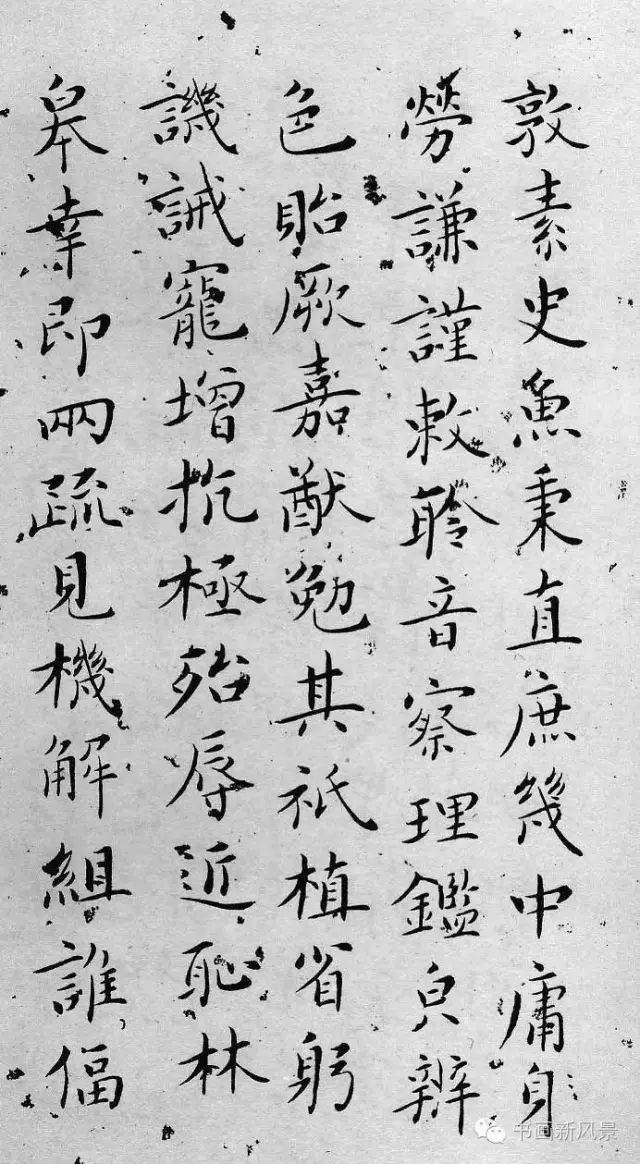 敦素史魚秉直庶幾中庸身
勞謙謹敕聆音察理鑑皃辨
色貽厥嘉猷勉其祇植省躬
譏誡寵增抗極殆辱近恥林
皋幸即兩疏見機解組誰偪
书画新风景